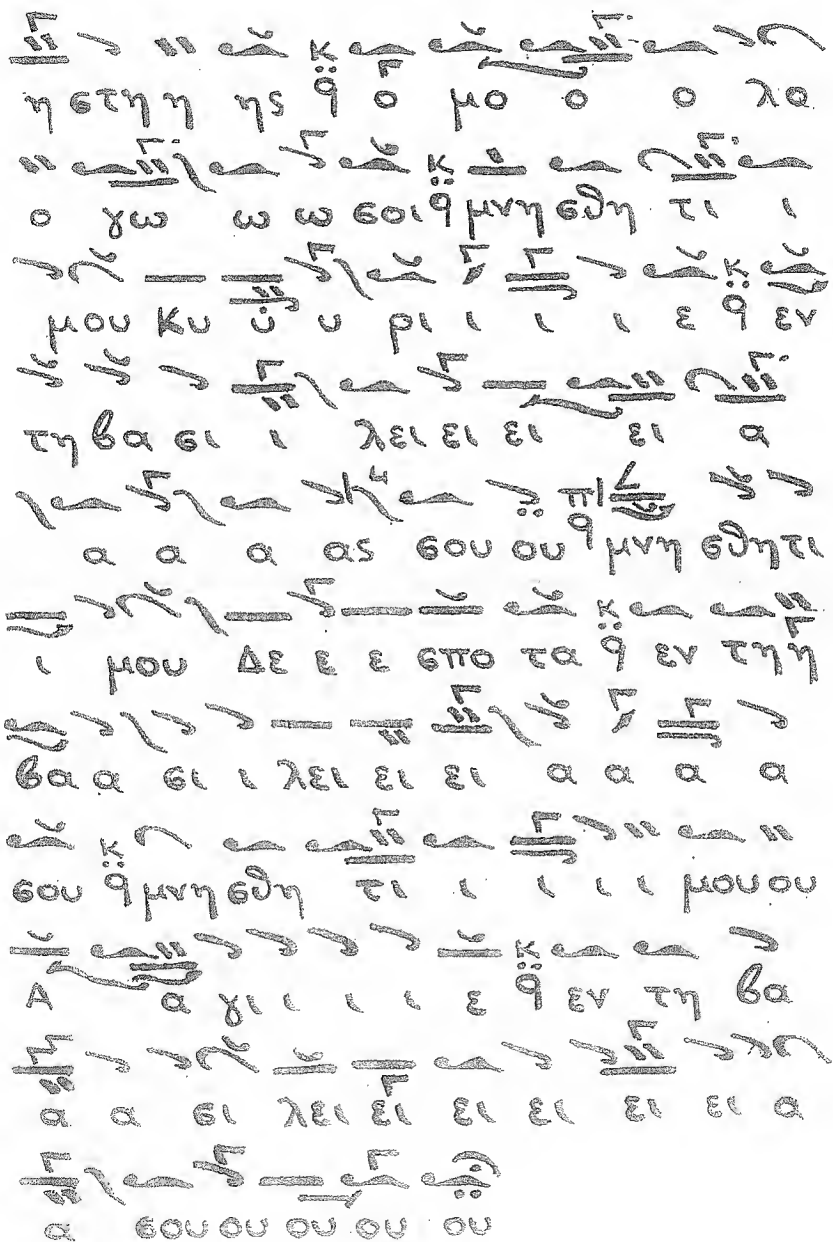 η στη η ης ο μο ο ο λα
ο γω ω ω σοι μνη σθη τι ι
μου Κυ υ υ ρι ι ι ι ε εν
τη βα σι ι λει ει ει ει α
α α α ας σου ου μνη σθη τι
ι μου Δε ε ε σπο τα εν τη η
βα α σι ι λει ει ει α α α α
σου μνη σθη τι ι ι ι ι μου ου
Α α γι ι ι ι ε εν τη βα
α α σι λει ει ει ει ει ει α
α σου ου ου ου ου